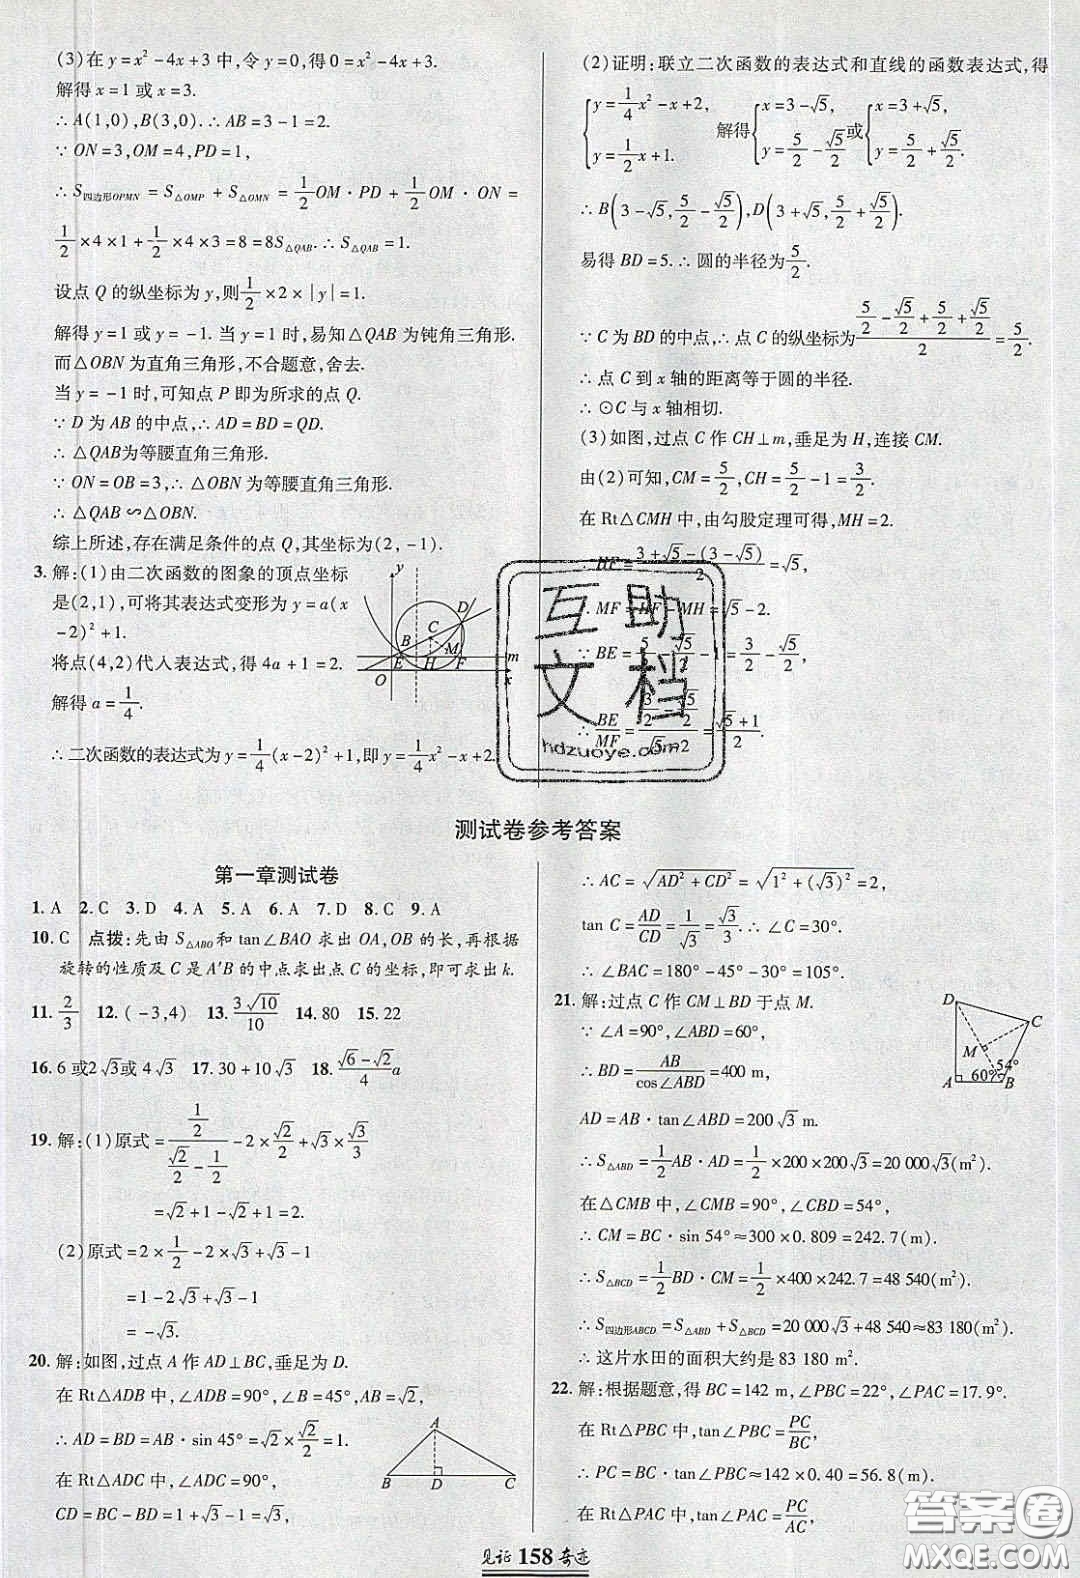 (3)在 y=x²-4x+3 中,令 y=0,得 0=x²-4x+3.
解得 x=1 或 x=3.
∴A(1,0),B(3,0).∴AB=3-1=2.
∵ON=3,OM=4,PD=1,
∴S四边形OPMN=S△OMP+S△OMN=1/2 OM·PD+1/2 OM·ON=
1/2×4×1+1/2×4×3=8=8S△QAB.∴S△QAB=1.
设点 Q 的纵坐标为 y,则1/2×2×|y|=1.
解得 y=1 或 y=-1.当 y=1 时,易知△QAB 为钝角三角形.
而△OBN 为直角三角形,不合题意,舍去.
当 y=-1 时,可知点 P 即为所求的点 Q.
∵D 为 AB 的中点,∴AD=BD=QD.
∴△QAB为等腰直角三角形.
∵ON=OB=3,∴△OBN 为等腰直角三角形.
∴△QAB∽△OBN.
综上所述,存在满足条件的点 Q,其坐标为(2,-1).
3.解:(1)由二次函数的图象的顶点坐标
是(2,1),可将其表达式变形为 y=a(x
-2)²+1.
将点(4,2)代人表达式,得 4a+1=2.
解得 a=1/4.
∴二次函数的表达式为 y=1/4(x-2)²+1,即 y=1/4x²-x+2.
y
D
B
C
M
E H F m
O x
(2)证明:联立二次函数的表达式和直线的函数表达式,得
{y=1/4x²-x+2, y=1/2x+1. 解得{x=3-√5, y=5/2-√5/2 或{x=3+√5, y=5/2+√5/2.
∴B(3-√5,5/2-√5/2),D(3+√5,5/2+√5/2).
易得 BD=5.∴圆的半径为5/2.
∵C 为 BD 的中点,∴点 C 的纵坐标为(5/2-√5/2+5/2+√5/2)/2=5/2.
∴点 C 到 x 轴的距离等于圆的半径.
∴⊙C 与 x 轴相切.
(3)如图,过点 C 作 CH⊥m,垂足为 H,连接 CM.
由(2)可知,CM=5/2,CH=5/2-1=3/2.
在 Rt△CMH 中,由勾股定理可得,MH=2.
∴HF=(3+√5-(3-√5))/2=√5,
∴MF=HF-MH=√5-2.
∵BE=5/2-√5/2-1=3/2-√5/2,
∴BE/MF=(3/2-√5/2)/(√5-2)=(√5+1)/2.
互助
文档
hdzuoye.com
测试卷参考答案
第一章测试卷
1.A 2.C 3.D 4.A 5.A 6.A 7.D 8.C 9.A
10.C 点拨:先由 S△ABO和 tan∠BAO 求出 OA,OB 的长,再根据
旋转的性质及 C 是 A′B 的中点求出点 C 的坐标,即可求出 k.
11.2/3 12.(-3,4) 13.3√10/10 14.80 15.22
16.6 或2√3或 4√3 17.10 18.(√6-√2)/4 a
19.解:(1)原式=(1/2)/(√2/2-1/2)-2×√2/2+√3×√3/3
=√2+1-√2+1=2.
(2)原式=2×1/2-2×√3+√3-1
=1-2√3+√3-1
=-√3.
20.解:如图,过点 A 作 AD⊥BC,垂足为 D.
在 Rt△ADB 中,∠ADB=90°,∠B=45°,AB=√2,
∴AD=BD=AB·sin 45°=√2×√2/2=1.
在 Rt△ADC 中,∠ADC=90°,
CD=BC-BD=1+√3-1=√3,
A
B D C
∴AC=√(AD²+CD²)=√(1²+(√3)²)=2,
tan C=AD/CD=1/√3=√3/3.∴∠C=30°.
∴∠BAC=180°-45°-30°=105°.
21.解:过点 C 作 CM⊥BD 于点 M.
∵∠A=90°,∠ABD=60°,
∴BD=AB/cos∠ABD=400 m,
AD=AB·tan∠ABD=200√3 m.
∴S△ABD=1/2 AB·AD=1/2×200×200√3=20 000√3(m²).
在△CMB 中,∠CMB=90°,∠CBD=54°,
∴CM=BC·sin 54°≈300×0.809=242.7(m).
∴S△BCD=1/2 BD·CM≈1/2×400×242.7=48 540(m²).
∴S四边形ABCD=S△ABD+S△BCD=20 000√3+48 540≈83 180(m²).
∴这片水田的面积大约是 83 180 m².
D
C
M
54°
60°
A B
22.解:根据题意,得 BC=142 m,∠PBC=22°,∠PAC=17.9°.
在 Rt△PBC 中,tan∠PBC=PC/BC,
∴PC=BC·tan∠PBC≈142×0.40=56.8(m).
在 Rt△PAC 中,tan∠PAC=PC/AC,
见证 158 奇迹
答案圈
MXQE.COM